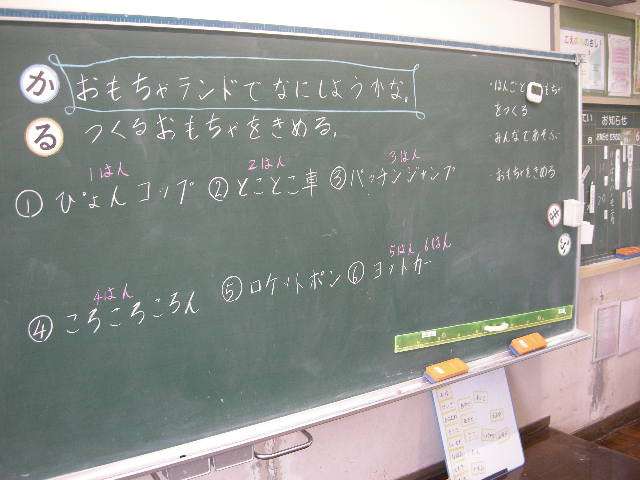 か おもちゃランドでなにしようかな。
る つくるおもちゃをきめる。
1はん 2はん 3はん
① ぴょんコップ ② とことこ車 ③ パッチンジャンプ
4はん 5はん 6はん
④ ころころころん ⑤ ロケットポン ⑥ ヨットカー
をつくる
みんなであそぶ
おもちゃをきめる
お知らせ